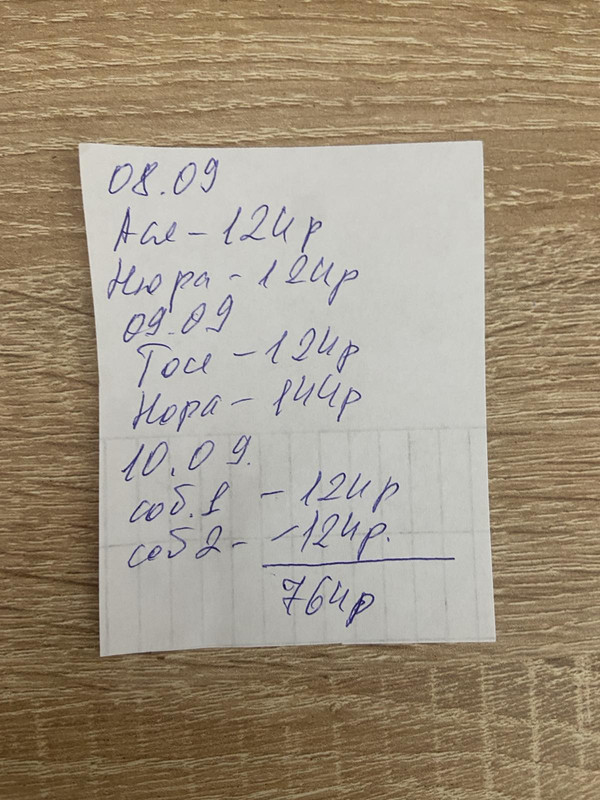 08.09
Ася - 124р
Нюра - 124р
09.09
Тося - 124р
Нора - 144р
10.09.
соб.1 - 124р
соб 2 - - 124р.
764р